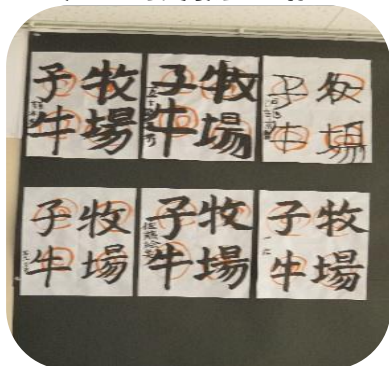 牧場
子牛
牧場
子牛
牧場
子牛
牧場
子牛
牧場
子牛
牧場
子牛